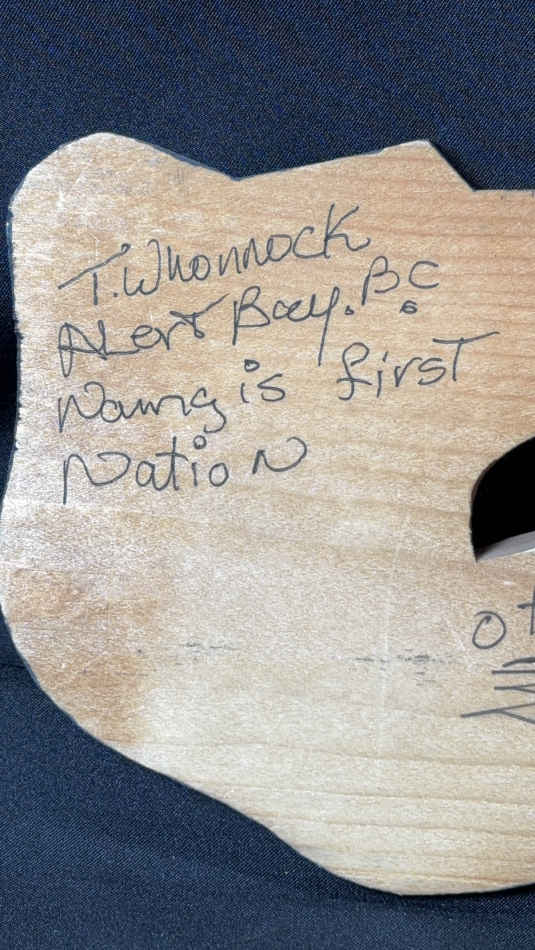 T. Whonnock
Alert Bay. BC
Namgis first
Nation